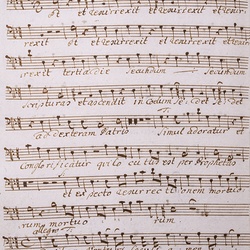 et resurrexit et resurrexit et resur
rexit et resurrexit et resurrexit et resur
rexit tertia die secundum secundum
scripturas et ascendit in Coelum sedet sede
ad dexteram Patris simul adoratur et
Conglorificatur qui lo cu tus est per Prophetas
et ex pecto resurrectionem mortuo
rum mortuo rum
allegro